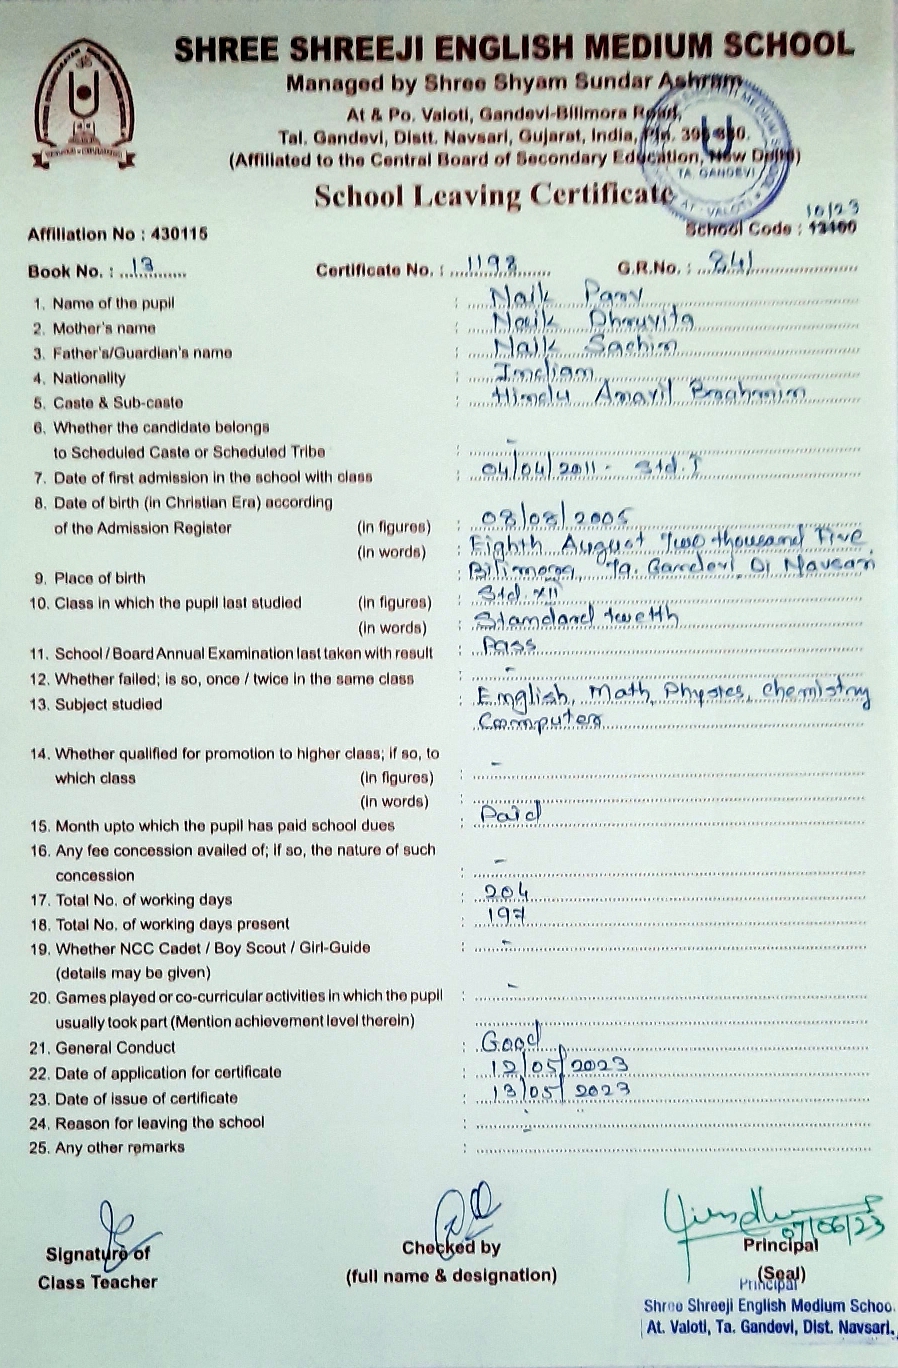 SHREE SHREEJI ENGLISH MEDIUM SCHOOL
Managed by Shree Shyam Sundar Ashram
At & Po. Valoti, Gandevi-Bilimora Road,
Tal. Gandevi, Distt. Navsari, Gujarat, India, Pin. 396
(Affiliated to the Central Board of Secondary Education, New Delhi)
TA. GANDEVI
AT - VALOTI
School Leaving Certificate
10/23
Affiliation No : 430115 School Code :
Book No. : 13 Certificate No. : 1198 G.R.No. : 841
1. Name of the pupil : Naik Parv
2. Mother's name : Naik Dhruvita
3. Father's/Guardian's name : Naik Sachin
4. Nationality : Indian
5. Caste & Sub-caste : Hindu Anavil Brahmin
6. Whether the candidate belongs
to Scheduled Caste or Scheduled Tribe : -
7. Date of first admission in the school with class : 04/04/2011 - Std. I
8. Date of birth (in Christian Era) according
of the Admission Register (in figures) : 08/08/2005
(in words) : Eighth August Two thousand Five
9. Place of birth : Bilimora, Ta. Gandevi, Di Navsari
10. Class in which the pupil last studied (in figures) : Std. XII
(in words) : Standard twelth
11. School / Board Annual Examination last taken with result : Pass
12. Whether failed; is so, once / twice in the same class : -
13. Subject studied : English, Math, Physics, Chemistry
Computer
14. Whether qualified for promotion to higher class; if so, to
which class (in figures) : -
(in words) :
15. Month upto which the pupil has paid school dues : Paid
16. Any fee concession availed of; if so, the nature of such
concession : -
17. Total No. of working days : 204
18. Total No. of working days present : 197
19. Whether NCC Cadet / Boy Scout / Girl-Guide : -
(details may be given)
20. Games played or co-curricular activities in which the pupil : -
usually took part (Mention achievement level therein)
21. General Conduct : Good
22. Date of application for certificate : 12/05/2023
23. Date of issue of certificate : 13/05/2023
24. Reason for leaving the school : -
25. Any other remarks :
07/06/23
Signature of Checked by Principal
Class Teacher (full name & designation) (Seal)
Principal
Shree Shreeji English Medium Schoo
At. Valoti, Ta. Gandevi, Dist. Navsari.